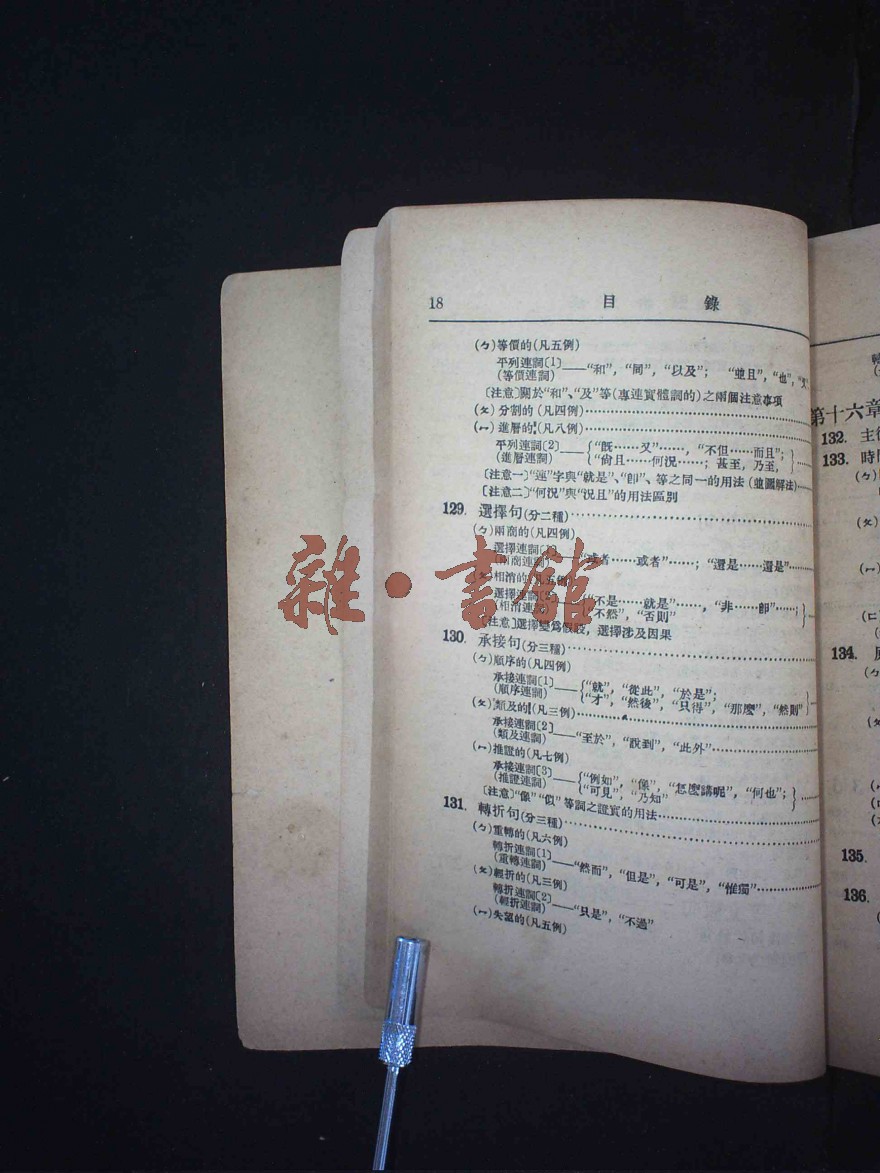 18 目 錄
(ㄅ)等價的(凡五例)
平列連詞[1]
(等價連詞)——“和”，“同”，“以及”； “並且”，“也”，“又
[注意]關於“和”、“及”等(專連實體詞的)之兩個注意事項
(ㄆ)分割的(凡四例)
(ㄇ)進層的(凡八例)
平列連詞[2]
(進層連詞)——{“旣……又”……，“不但……而且”；
{“尙且……何況……；甚至，乃至，}
[注意一]“連”字與“就是”、“卽”、等之同一的用法(並圖解法)
[注意二]“何況”與“況且”的用法區別
129. 選擇句(分二種)
(ㄅ)兩商的(凡四例)
選擇連詞[1]
(兩商連詞)——“或者……或者”……；“還是……還是”
(ㄆ)相消的(凡五例)
選擇連詞[2]
(相消連詞)——{“不是……就是”……，“非……卽”……；}
“不然”，“否則”
[注意]選擇變爲假設，選擇涉及因果
130. 承接句(分三種)
(ㄅ)順序的(凡四例)
承接連詞[1]
(順序連詞)——{“就”，“從此”，“於是”；
{“才”，“然後”，“只得”，“那麽”，“然則”}
(ㄆ)類及的(凡三例)
承接連詞[2]
(類及連詞)——“至於”，“說到”，“此外”
(ㄇ)推證的(凡七例)
承接連詞[3]
(推證連詞)——{“例如”，“像”，“怎麽講呢”，“何也”；}
{“可見”，“乃知”
[注意]“像”“似”等詞之證實的用法
131. 轉折句(分三種)
(ㄅ)重轉的(凡六例)
轉折連詞[1]
(重轉連詞)——“然而”，“但是”，“可是”，“惟獨”
(ㄆ)輕折的(凡三例)
轉折連詞[2]
(輕折連詞)——“只是”，“不過”
(ㄇ)失望的(凡五例)
第十六章
132. 主從
133. 時間
(ㄅ)
(ㄆ)
(ㄇ)
(ㄈ)
134.
(ㄅ)
(ㄆ)
135.
136.
雜·書館